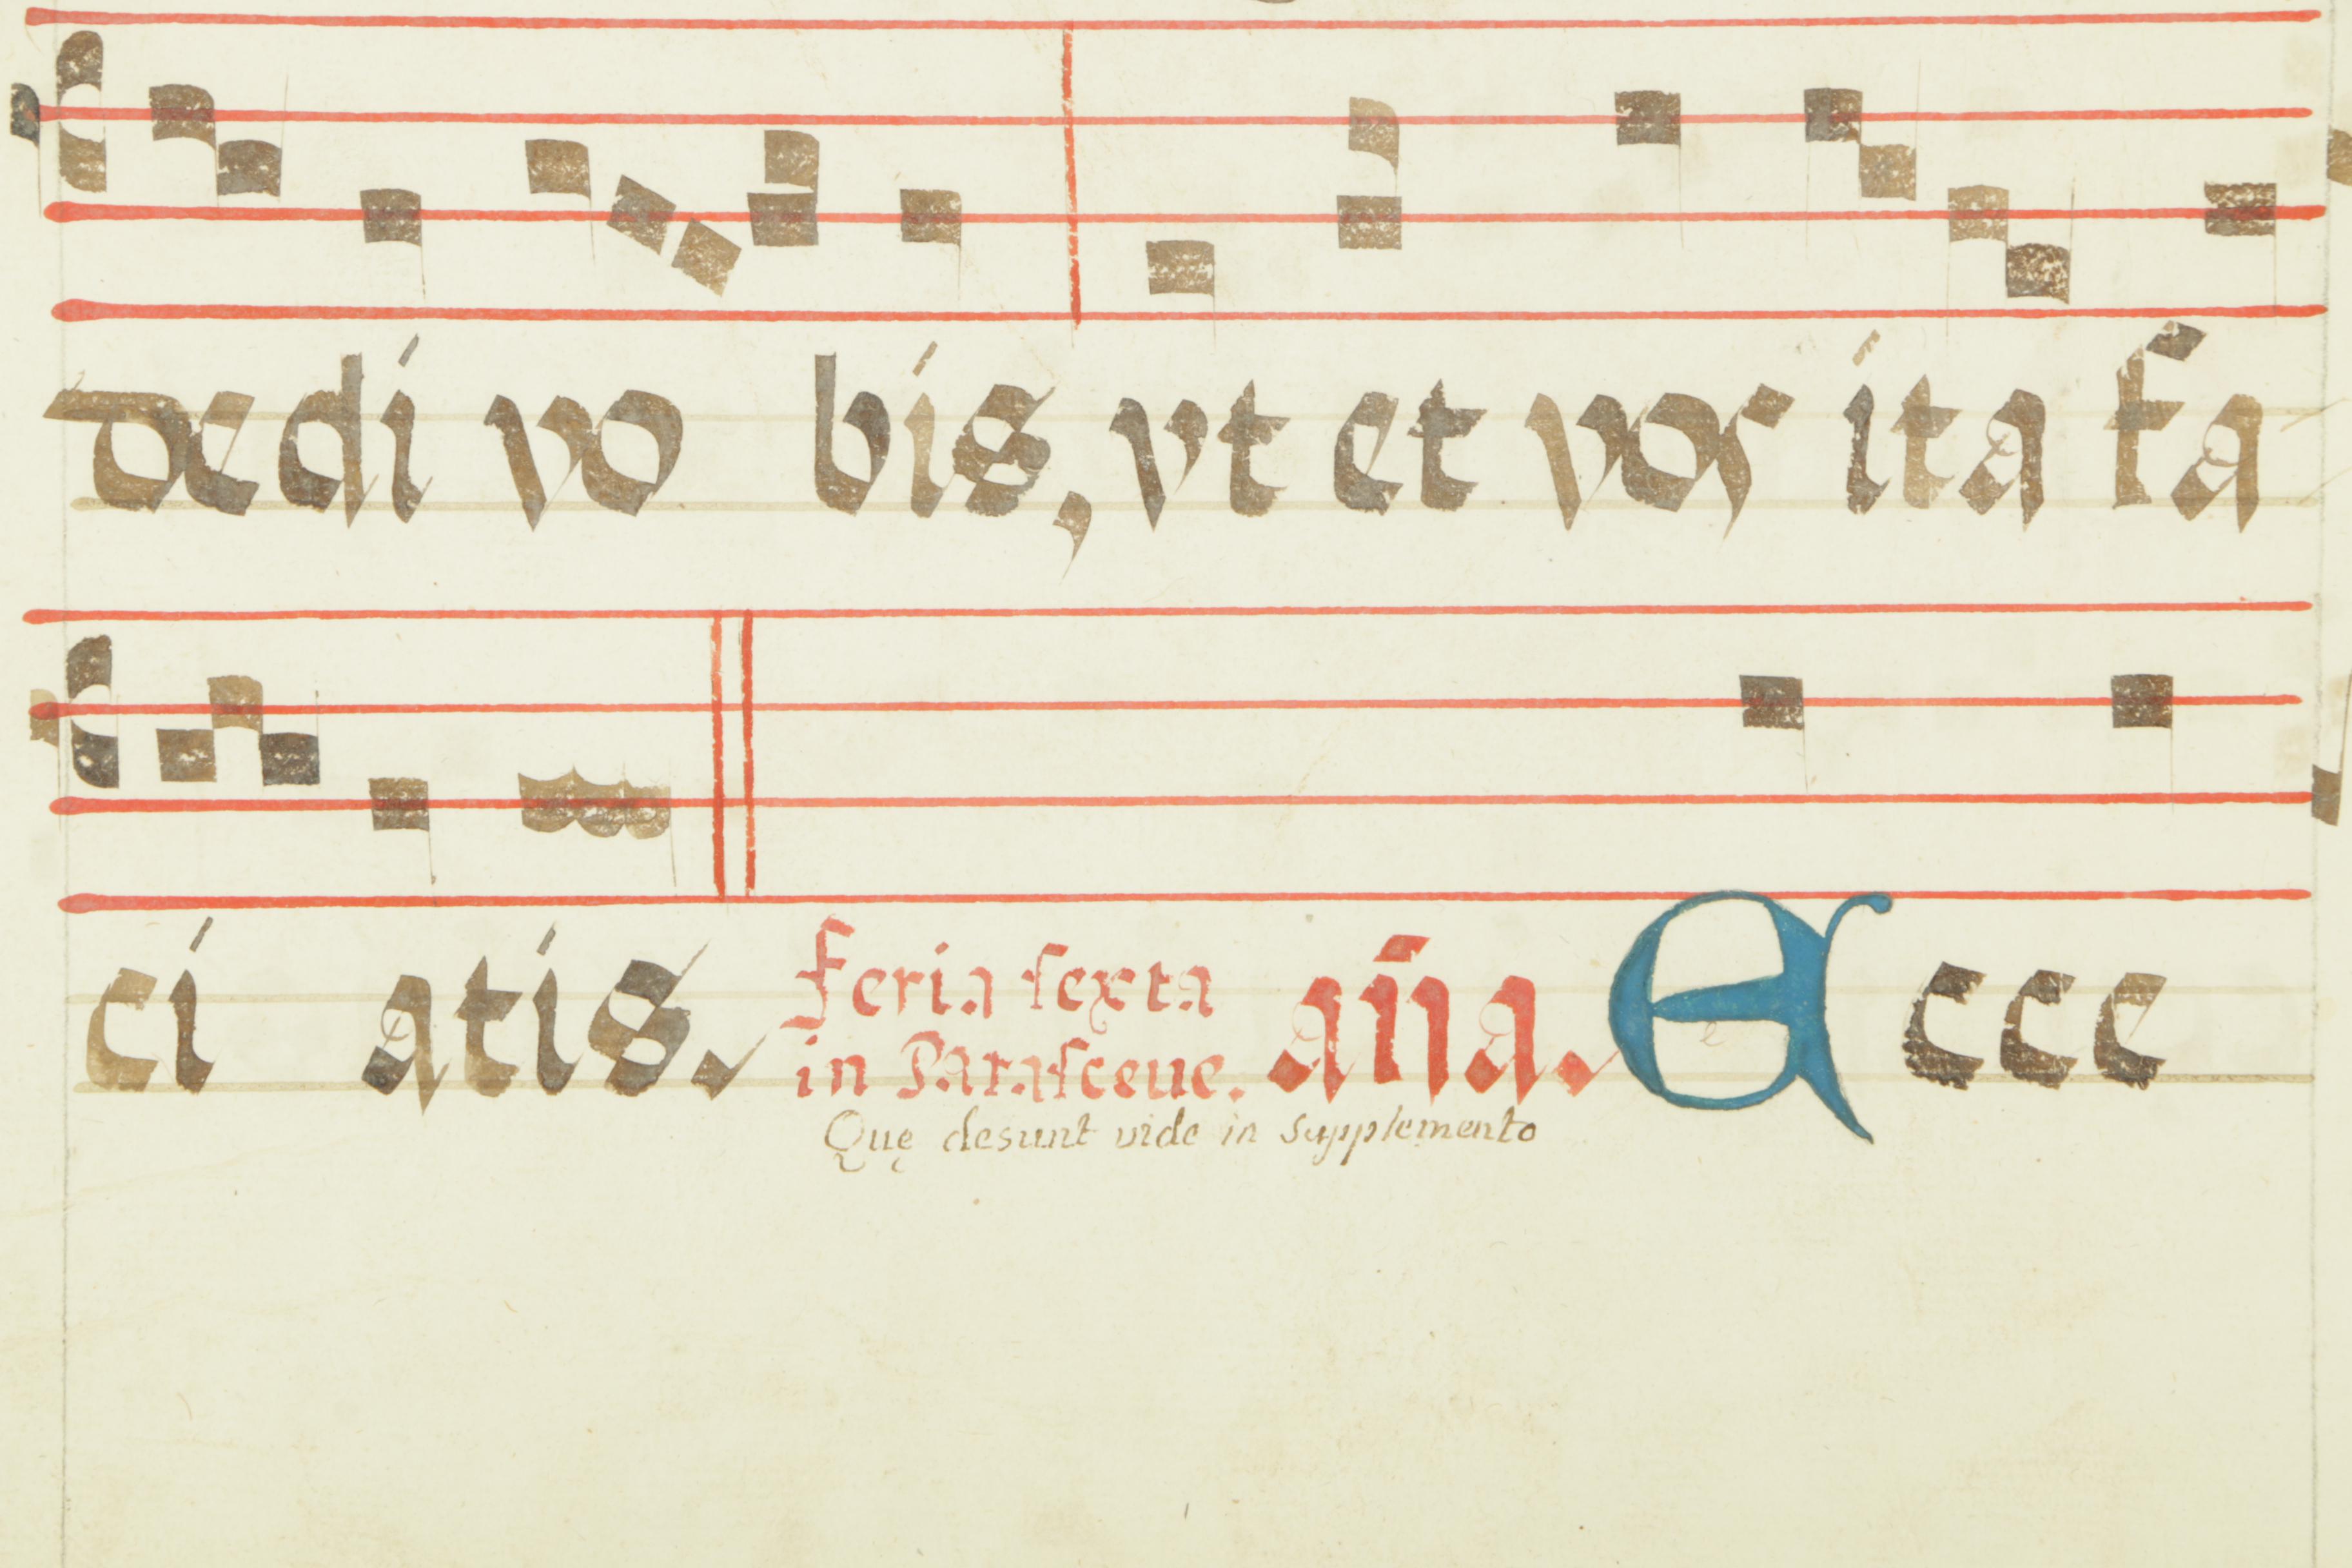 dedi vo bis, vt et vos ita fa
ci atis. feria sexta
in Parasceue. aña. Eccce
Quę desunt vide in supplemento